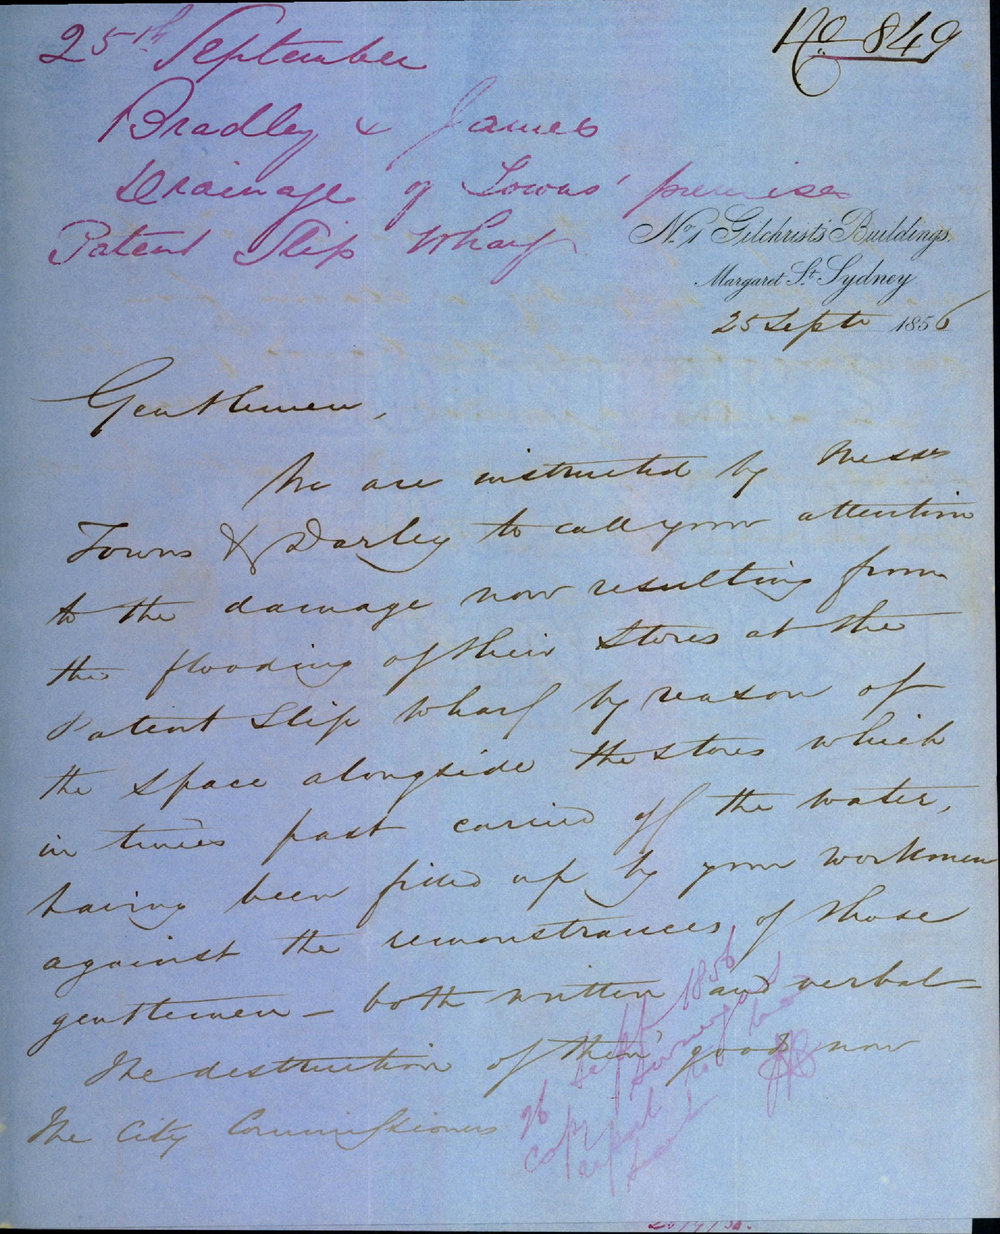 25th September
No 849
Bradley & James
Drainage of Towns' premises
Patent Slip Wharf
No 1 Gilchrist's Buildings.
Margaret St. Sydney
25 Septr 1856
Gentlemen,
We are instructed by Messrs
Towns & Darley to call your attention
to the damage now resulting from
the flooding of their Stores at the
Patent Slip Wharf by reason of
the space alongside the stores which
in times past carried off the water,
having been filled up by your workmen
against the remonstrances of those
gentlemen – both written and verbal =
The destruction of their goods now
The City Commissioners
26 Sept 1856
Copy
report to be